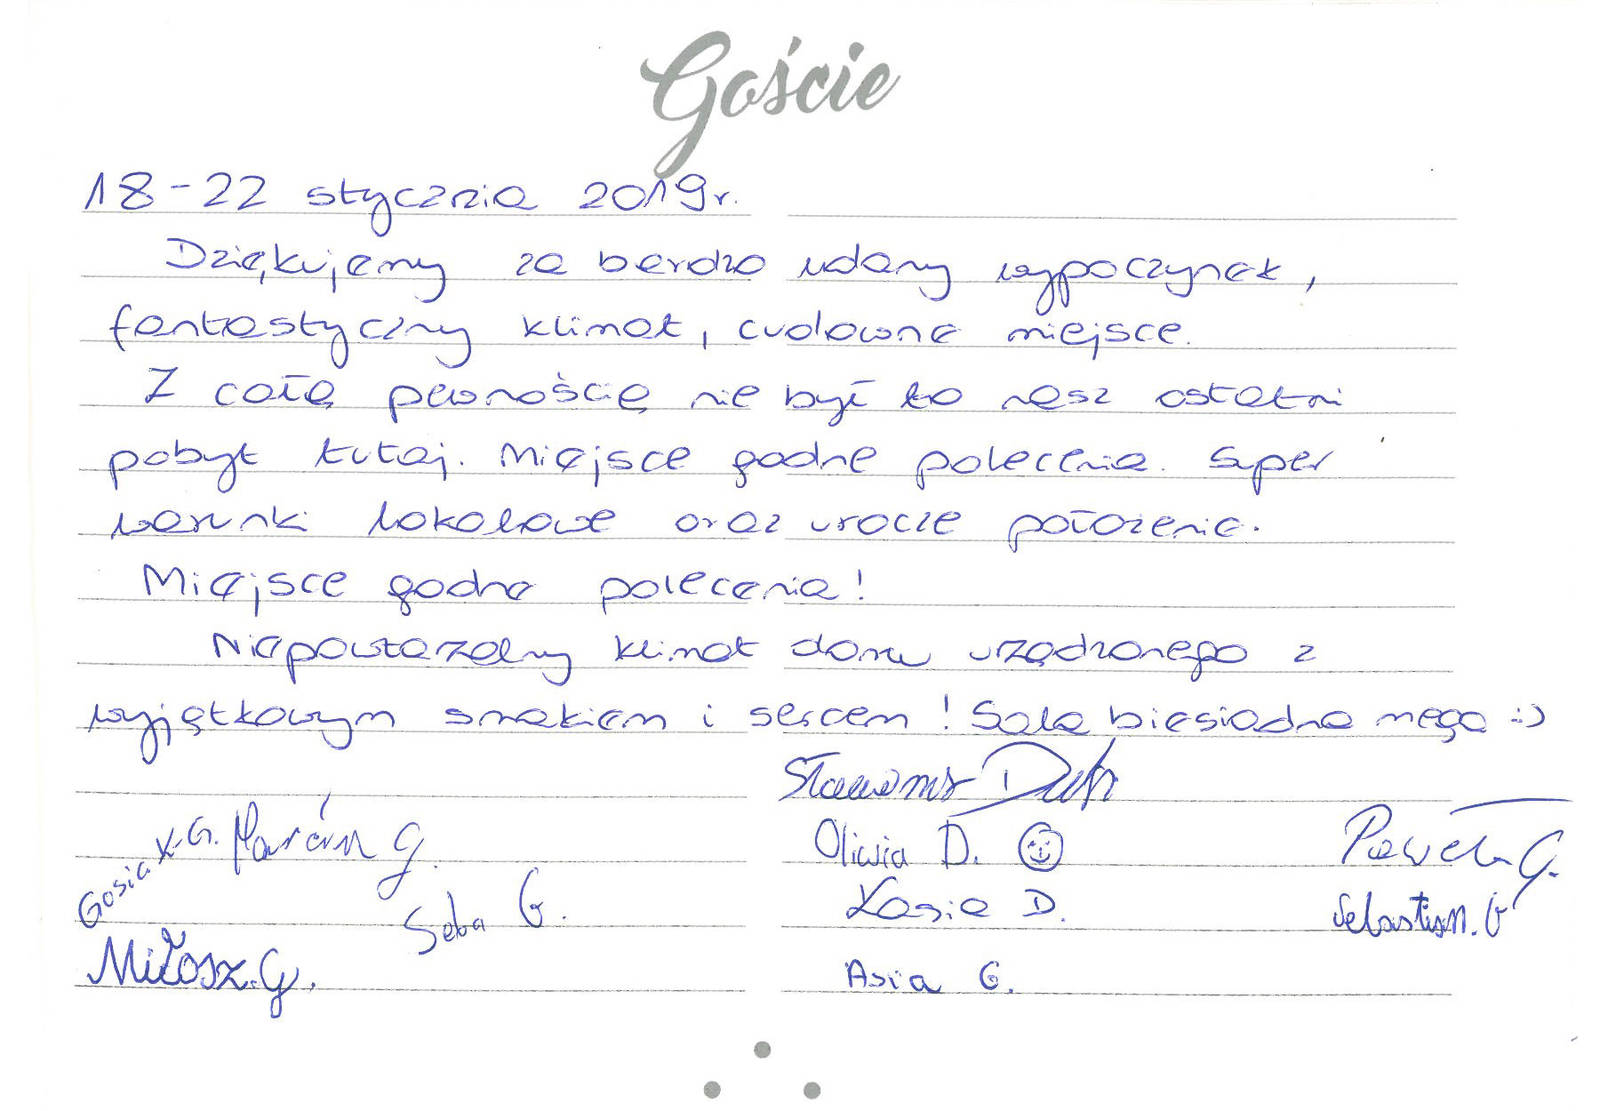 Goście
18-22 stycznia 2019r.
Dziękujemy za bardzo udany wypoczynek,
fantastyczny klimat, cudowne miejsce.
Z całą pewnością nie był to nasz ostatni
pobyt tutaj. Miejsce godne polecenia. Super
warunki lokalowe oraz urocze położenie.
Miejsce godne polecenia!
Niepowtarzalny klimat domu urządzonego z
wyjątkowym smakiem i sercem! Sala biesiadna mega :)
Sławomir
Gosia K-G. Marcin G. Oliwia D. Paweł G.
Seba G. Kasia D. Sebastian. G
Miłosz. G. Asia G.